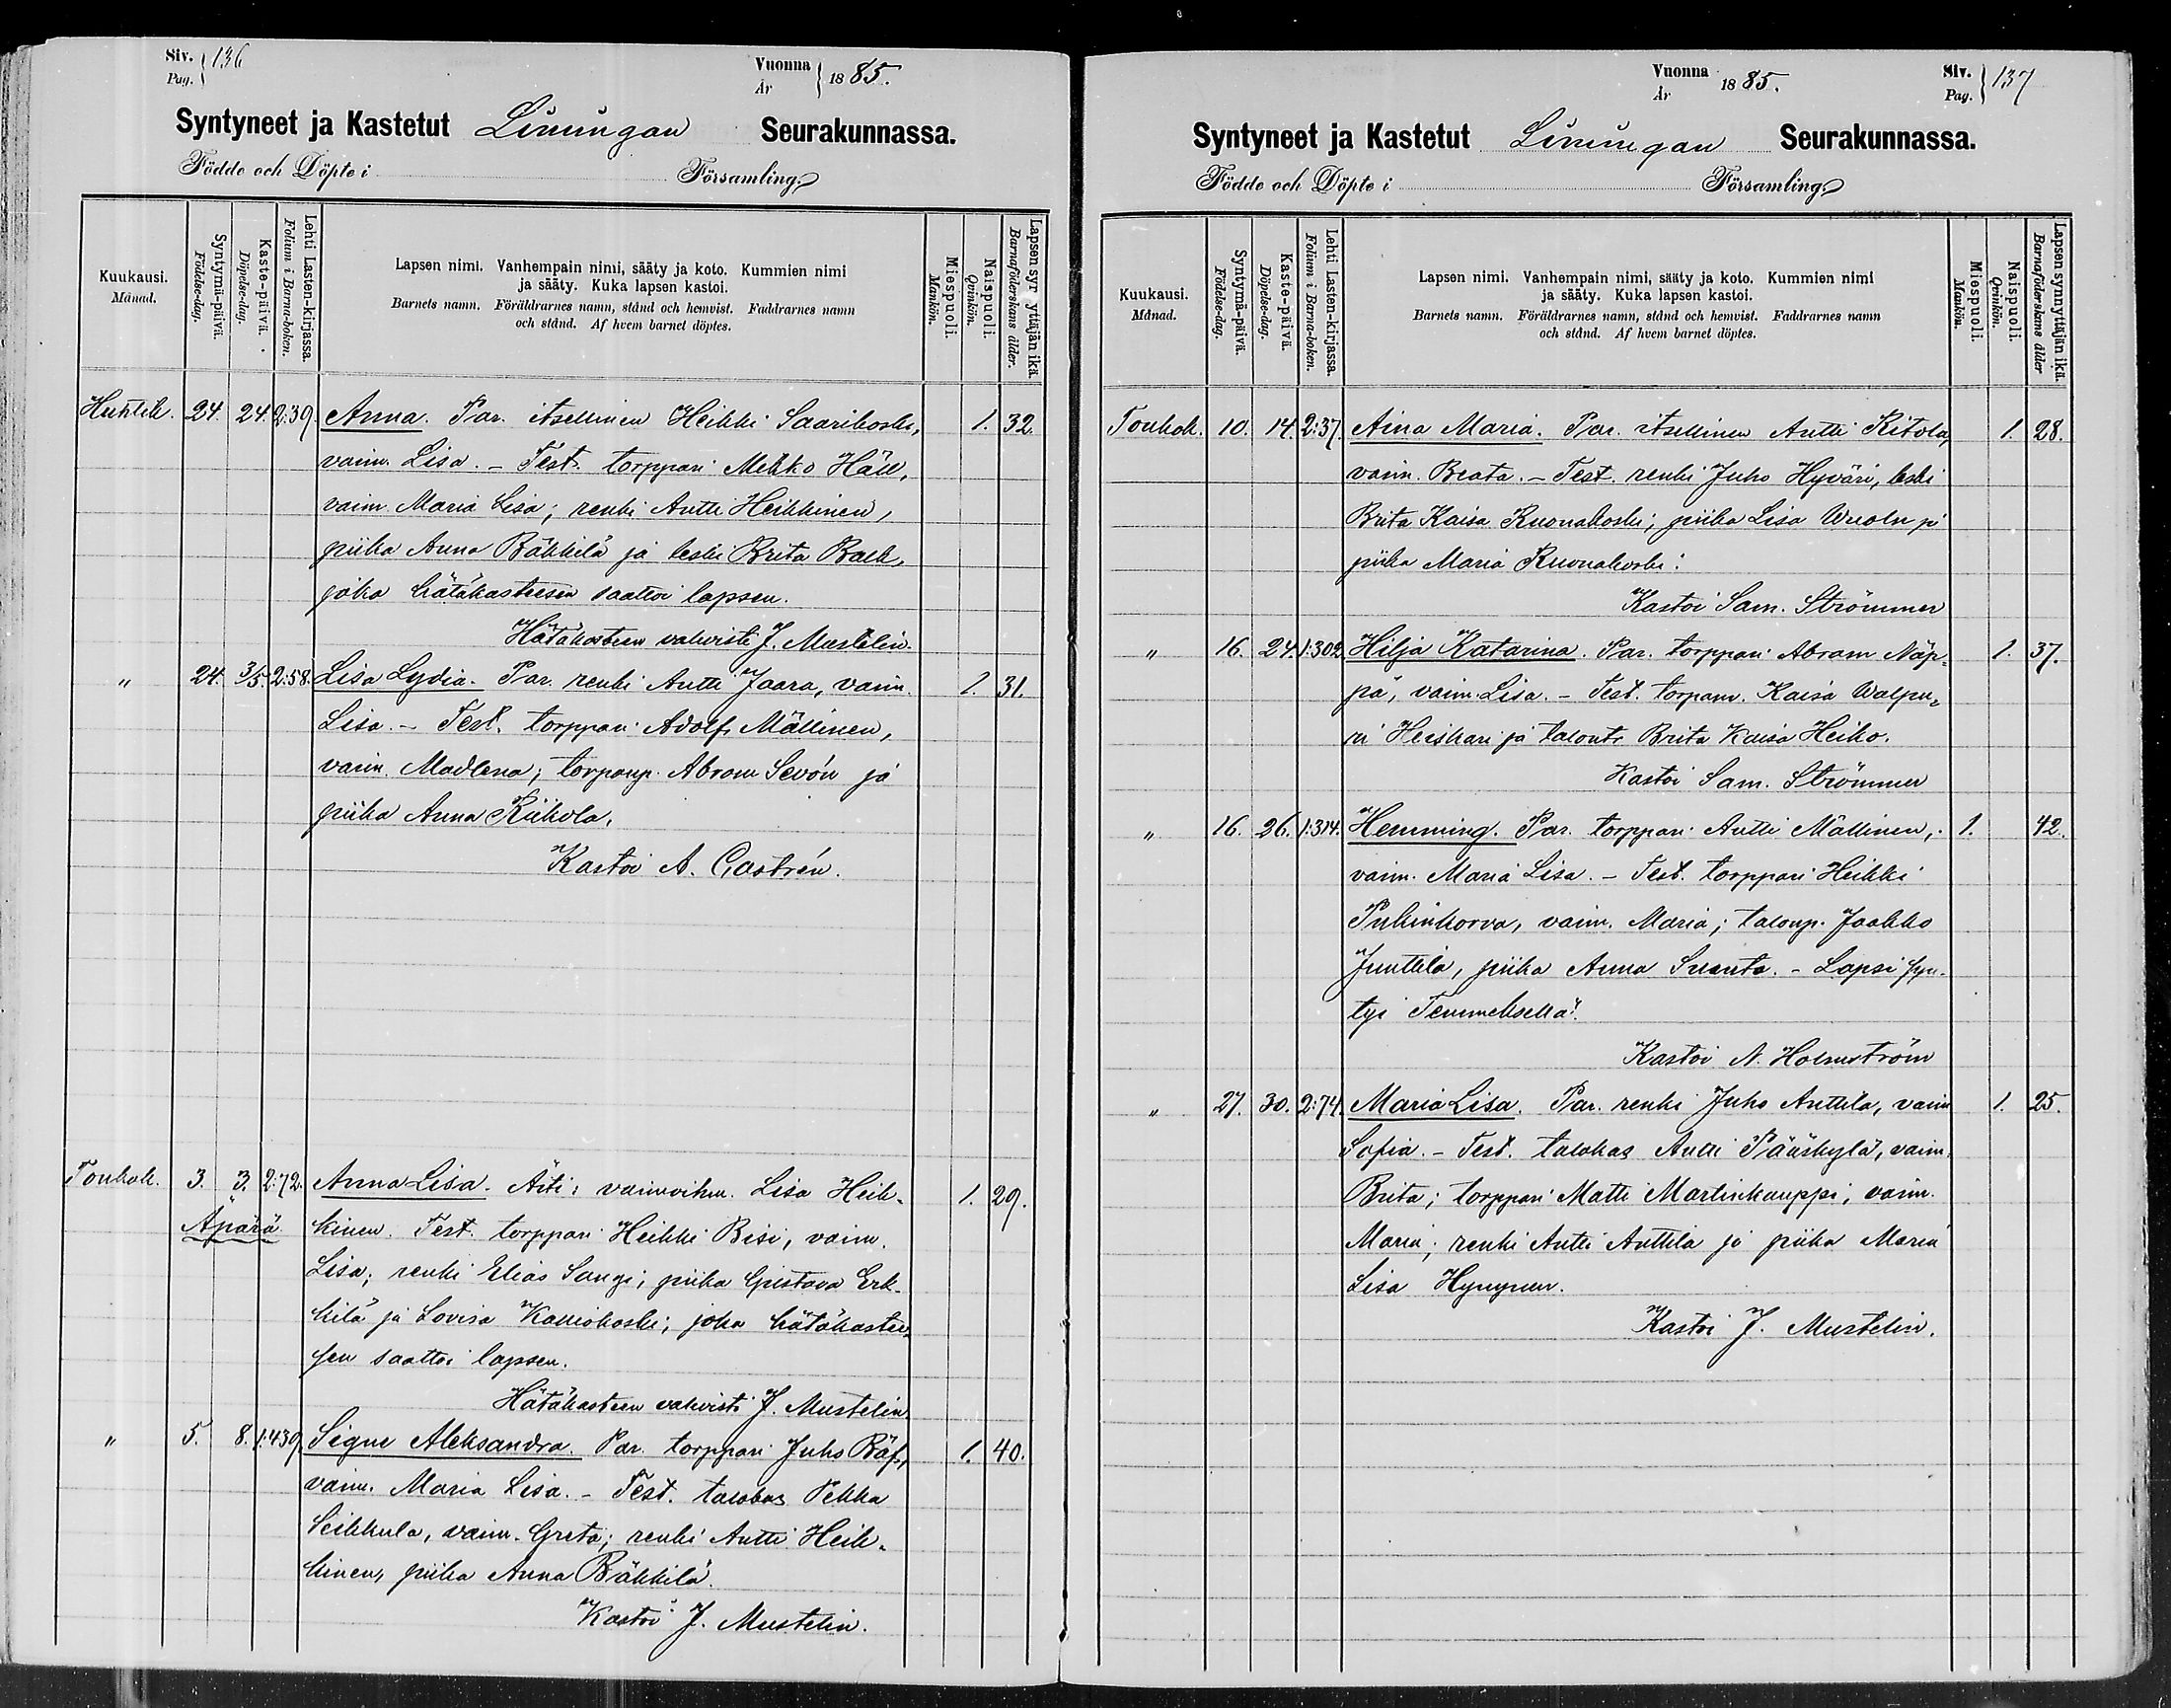 Siv. 136
Pag.
Vuonna 1885.
År
Syntyneet ja Kastetut Limingan Seurakunnassa.
Födde och Döpte i Församling.
Kuukausi.
Månad.
Syntymä-päivä.
Födelse-dag.
Kaste-päivä.
Döpelse-dag.
Lehti Lasten-kirjassa.
Folium i Barna-boken.
Lapsen nimi. Vanhempain nimi, sääty ja koto. Kummien nimi
ja sääty. Kuka lapsen kastoi.
Barnets namn. Föräldrarnes namn, stånd och hemvist. Faddrarnes namn
och stånd. Af hvem barnet döptes.
Miespuoli.
Mankön.
Naispuoli.
Qvinkön.
Lapsen syr yttäjän ikä.
Barnaföderskans ålder.
Huhtik. 24. 24. 2:39. Anna. Par. itsellinen Heikki Saarikoski, 1. 32.
vaim. Lisa. - Test. torppari Mikko Häll,
vaim. Maria Lisa; renki Antti Heikkinen,
piika Anna Bäkkilä ja leski Brita Back,
joka hätäkasteesen saattoi lapsen.
Hätäkasteen vahvisti J. Mustelin.
" 24. 3/5. 2:58. Lisa Lydia. Par. renki Antti Jaara, vaim. 1. 31.
Lisa. - Test. torppari Adolf Mällinen,
vaim. Madlena; torpanp. Abram Sevón ja
piika Anna Riikola.
Kastoi A. Castrén.
Toukok. 3. 3. 2:72. Anna Lisa. Äiti: vaimoihm. Lisa Heik- 1. 29.
Äpärä. kinen. Test. torppari Heikki Bisi, vaim.
Lisa; renki Elias Sangi; piika Gustava Erk-
kilä ja Lovisa Kauiokoski; joka hätäkastee-
sen saattoi lapsen.
Hätäkasteen vahvisti J. Mustelin
" 5. 8. 1:439. Signe Aleksandra. Par. torppari Juho Räf, 1. 40.
vaim. Maria Lisa. - Test. talokas Pekka
Leikkula, vaim. Greta; renki Antti Heik-
kinen, piika Anna Bäkkilä.
Kastoi J. Mustelin.
Vuonna 1885.
År
Siv. 137
Pag.
Syntyneet ja Kastetut Limingan Seurakunnassa.
Födde och Döpte i Församling.
Kuukausi.
Månad.
Syntymä-päivä.
Födelse-dag.
Kaste-päivä.
Döpelse-dag.
Lehti Lasten-kirjassa.
Folium i Barna-boken.
Lapsen nimi. Vanhempain nimi, sääty ja koto. Kummien nimi
ja sääty. Kuka lapsen kastoi.
Barnets namn. Föräldrarnes namn, stånd och hemvist. Faddrarnes namn
och stånd. Af hvem barnet döptes.
Miespuoli.
Mankön.
Naispuoli.
Qvinkön.
Lapsen synnyttäjän ikä.
Barnaföderskans ålder
Toukok. 10. 14. 2:37. Aina Maria. Par. itsellinen Antti Kitola, 1. 28.
vaim. Beata. - Test. renki Juho Hyväri, leski
Brita Kaisa Ruonakoski; piika Lisa Wuolu ja
piika Maria Ruonakoski.
Kastoi Sam. Strömmer
" 16. 24. 1:302. Hilja Katarina. Par. torppari Abram Näp- 1. 37.
pä, vaim. Lisa. - Test. torpanv. Kaisa Walpu-
ri Heiskari ja talont. Brita Kaisa Heiko.
Kastoi Sam. Strömmer
" 16. 26. 1:314. Hemming. Par. torppari Antti Mällinen, 1. 42.
vaim. Maria Lisa. - Test. torppari Heikki
Puhinkorva, vaim. Maria; talonp. Jaakko
Junttila, piika Anna Suanta. - Lapsi syn-
tyi Temmeksellä.
Kastoi N. Holmström
" 27. 30. 2:74. Maria Lisa. Par. renki Juho Anttila, vaim 1. 25.
Sofia. - Test. talokas Antti Pääskylä, vaim.
Brita; torppari Matti Martinkauppi, vaim.
Maria; renki Antti Anttila ja piika Maria
Lisa Hyngynen.
Kastoi J. Mustelin.